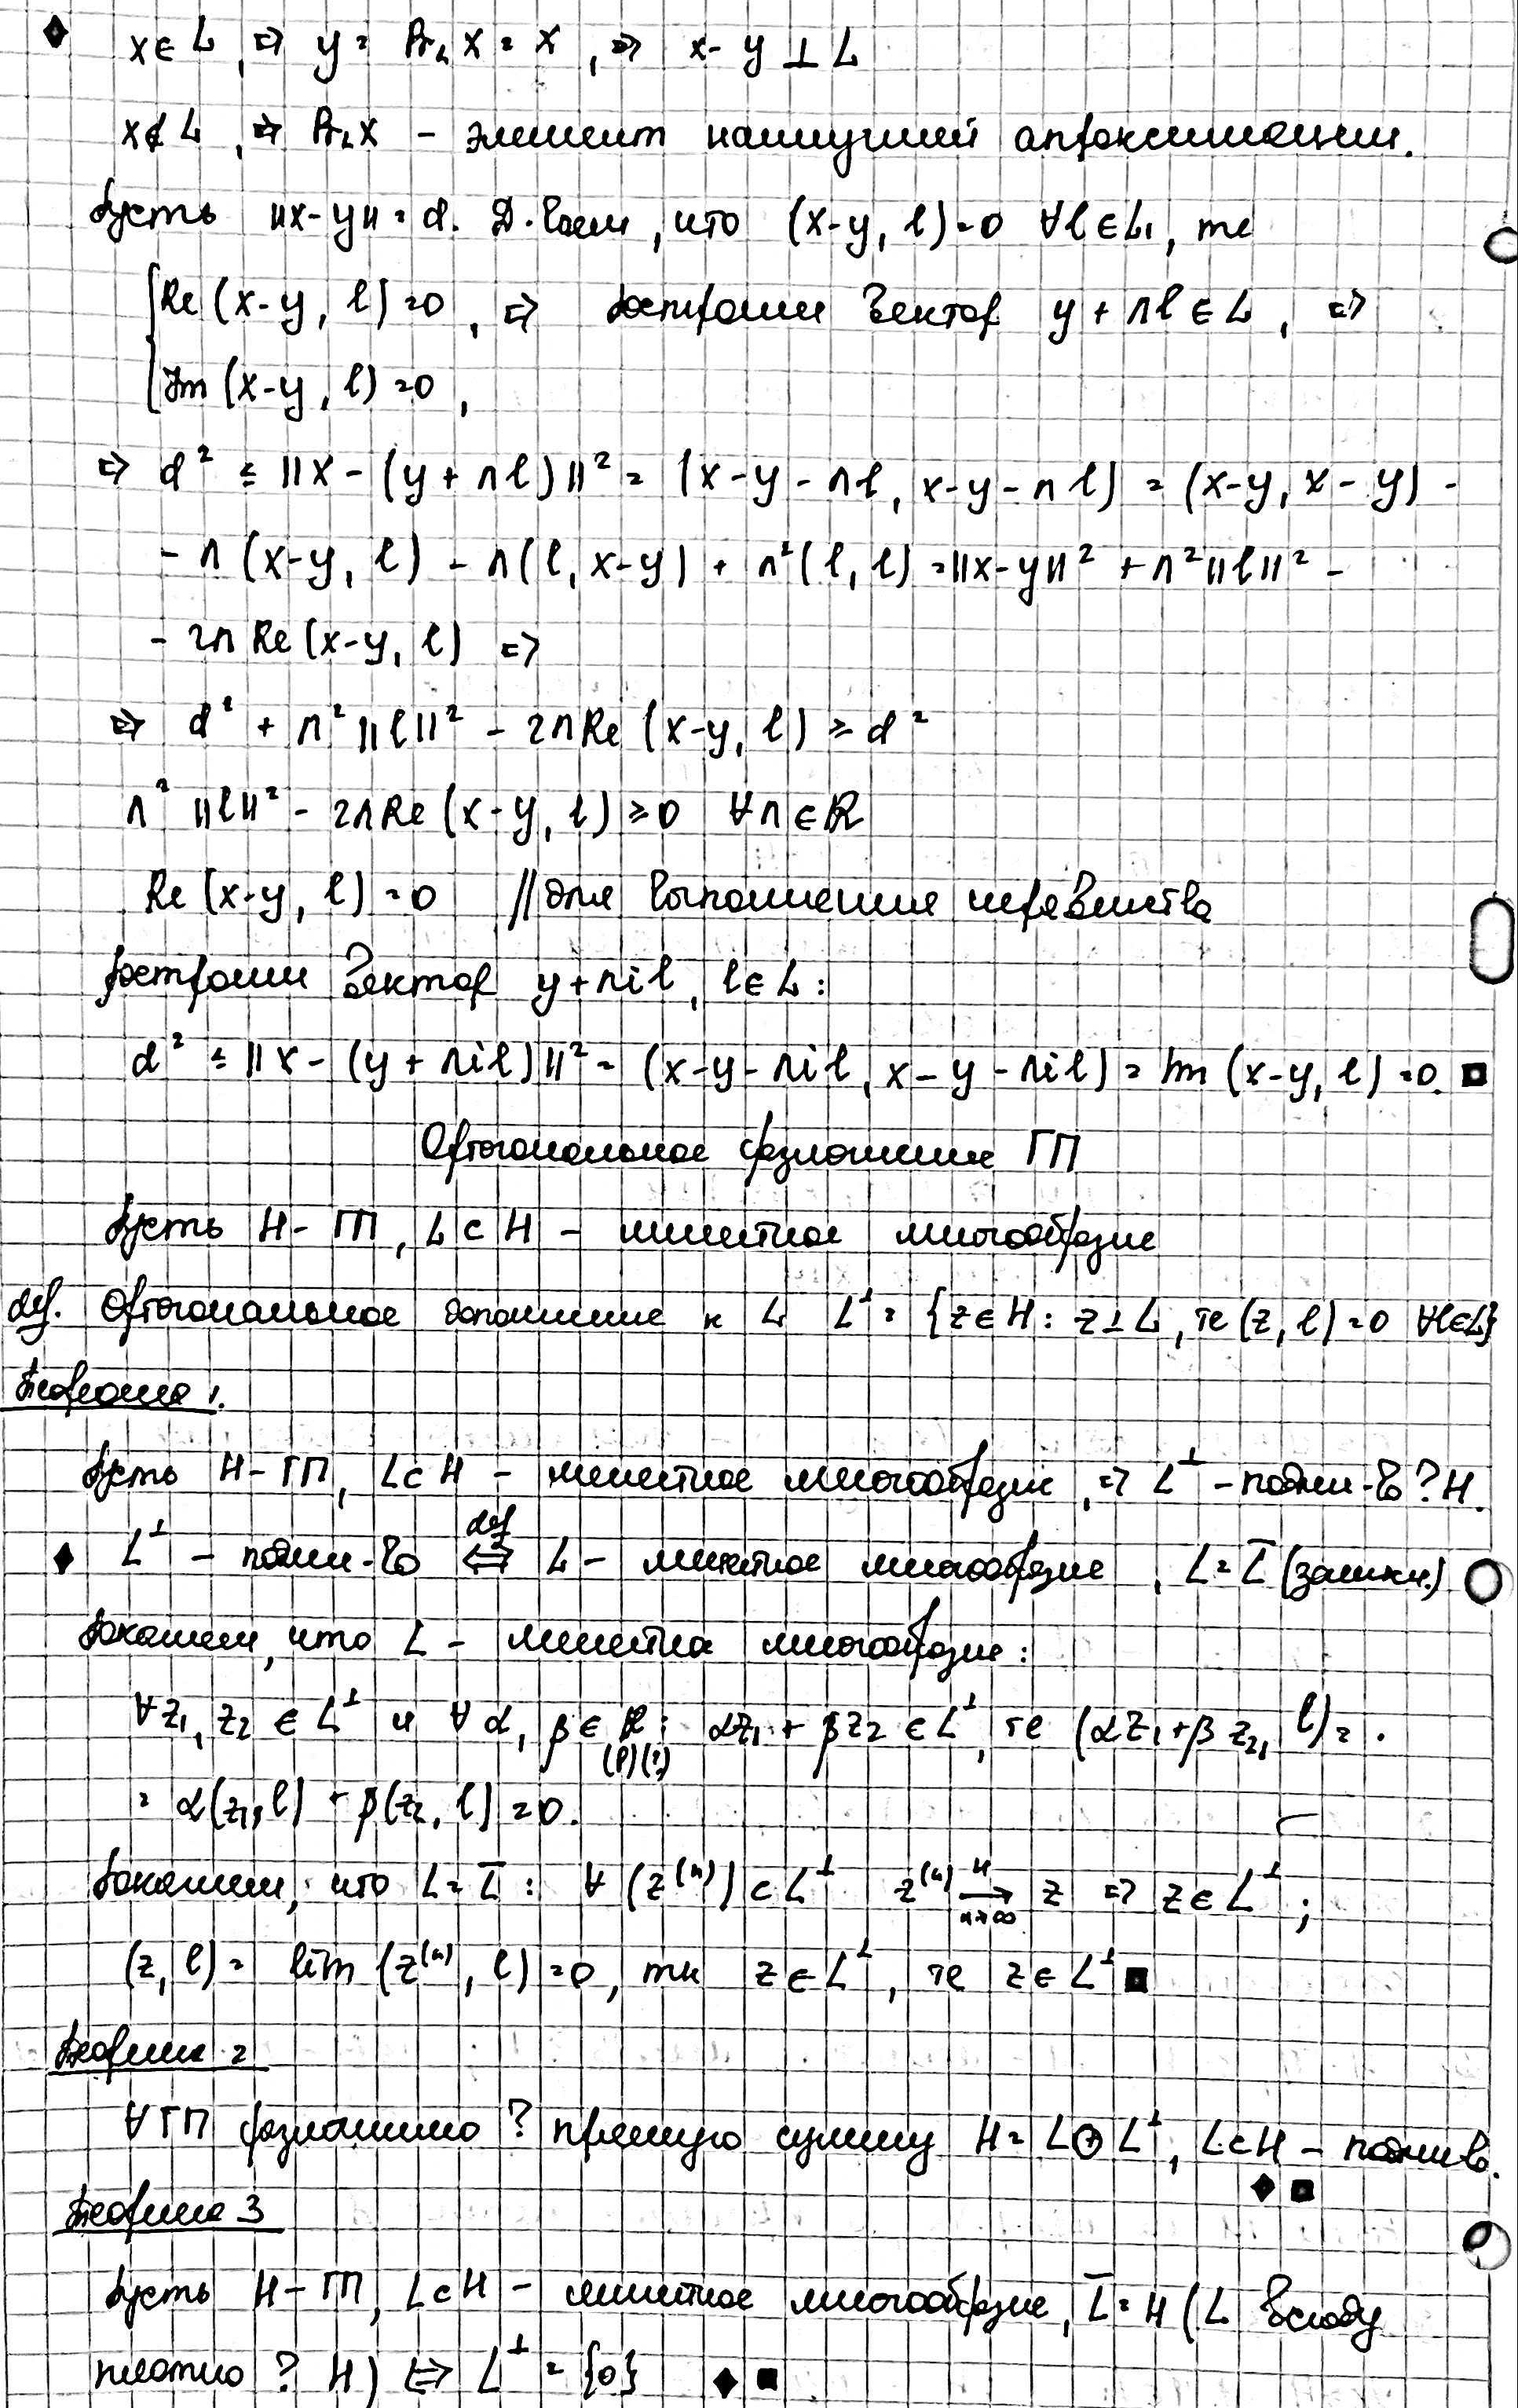 ♦ x∈L, ⇒ y = Pr_L x = x, ⇒ x-y ⊥ L
x∉L, ⇒ Pr_L x - элемент наилучшей аппроксимации.
Пусть ||x-y|| = d. Д-жем, что (x-y, l)=0 ∀l∈L, те
{Re(x-y, l)=0, ⇒ построим вектор y+λl∈L, ⇒
{Im(x-y, l)=0,
⇒ d² ≤ ||x-(y+λl)||² = (x-y-λl, x-y-λl) = (x-y, x-y) -
- λ(x-y, l) - λ(l, x-y) + λ²(l, l) = ||x-y||² + λ²||l||² -
- 2λRe(x-y, l) ⇒
⇒ d² + λ²||l||² - 2λRe(x-y, l) ≥ d²
λ²||l||² - 2λRe(x-y, l) ≥ 0 ∀λ∈R
Re(x-y, l)=0 // для выполнения неравенства
Построим вектор y+λil, l∈L:
d² ≤ ||x-(y+λil)||² = (x-y-λil, x-y-λil) = Im(x-y, l)=0. ■
Ортогональное разложение ГП
Пусть H-ГП, L⊂H - линейное многообразие
def. Ортогональное дополнение к L L^⊥ = {z∈H: z⊥L, те (z, l)=0 ∀l∈L}
Теорема 1.
Пусть H-ГП, L⊂H - линейное многообразие, ⇒ L^⊥ - подпр-во ? H.
♦ L^⊥ - подпр-во ⇔ (def) L - линейное многообразие, L=L̅ (замкн.)
Докажем, что L - линейное многообразие:
∀z₁, z₂ ∈ L^⊥ и ∀α, β ∈ R: αz₁+βz₂ ∈ L^⊥, те (αz₁+βz₂, l) =
= α(z₁, l) + β(z₂, l) = 0.
Докажем, что L=L̅: ∀(z⁽ⁿ⁾)⊂L^⊥ z⁽ⁿ⁾ →(H, n→∞) z ⇒ z∈L^⊥;
(z, l) = lim(z⁽ⁿ⁾, l)=0, тк z∈L^⊥, те z∈L^⊥ ■
Теорема 2
∀ГП разложимо ? прямую сумму H = L⊕L^⊥, L⊂H - подпр-во.
♦ ■
Теорема 3
Пусть H-ГП, L⊂H - линейное многообразие, L̅=H (L всюду
плотно ? H) ⇔ L^⊥ = {0} ♦ ■